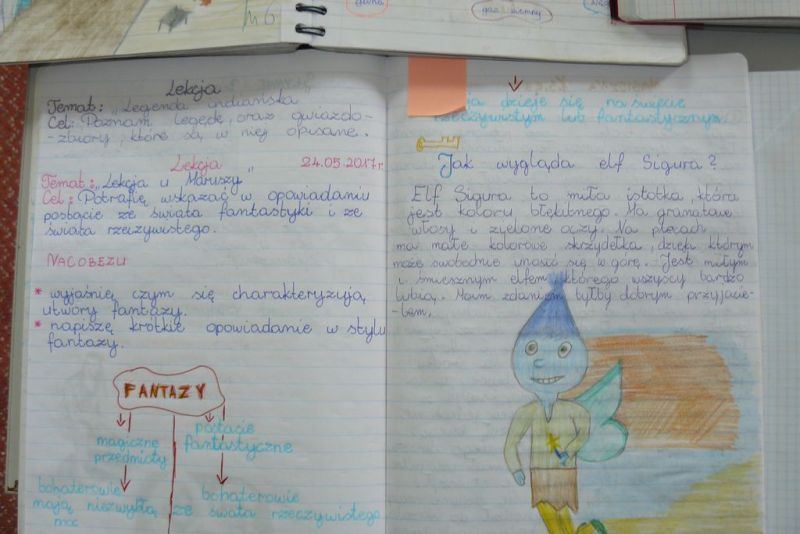 gaz ziemny
Lekcja
Temat: „Legenda indiańska"
Cel: Poznam legendę oraz gwiazdo-
-zbiory, które są w niej opisane.
Lekcja 24.05.2017r.
Temat: „Lekcja u Maruszy"
Cel: Potrafię wskazać w opowiadaniu
postacie ze świata fantastyki i ze
świata rzeczywistego.
NACOBEZU
* wyjaśnię czym się charakteryzują
utwory fantazy.
* napiszę krótkie opowiadanie w stylu
fantazy.
FANTAZY
magiczne
przedmioty
postacie
fantastyczne
bohaterowie
mają niezwykłą
moc
bohaterowie
ze świata rzeczywistego
dzieje się na świecie
rzeczywistym lub fantastycznym.
Jak wygląda elf Sigura?
Elf Sigura to miła istotka, która
jest koloru błękitnego. Ma granatowe
włosy i zielone oczy. Na plecach
ma małe kolorowe skrzydełka, dzięki którym
może swobodnie unosić się w górę. Jest miłym
i śmiesznym elfem, którego wszyscy bardzo
lubią. Moim zdaniem byłby dobrym przyjacie-
-lem.